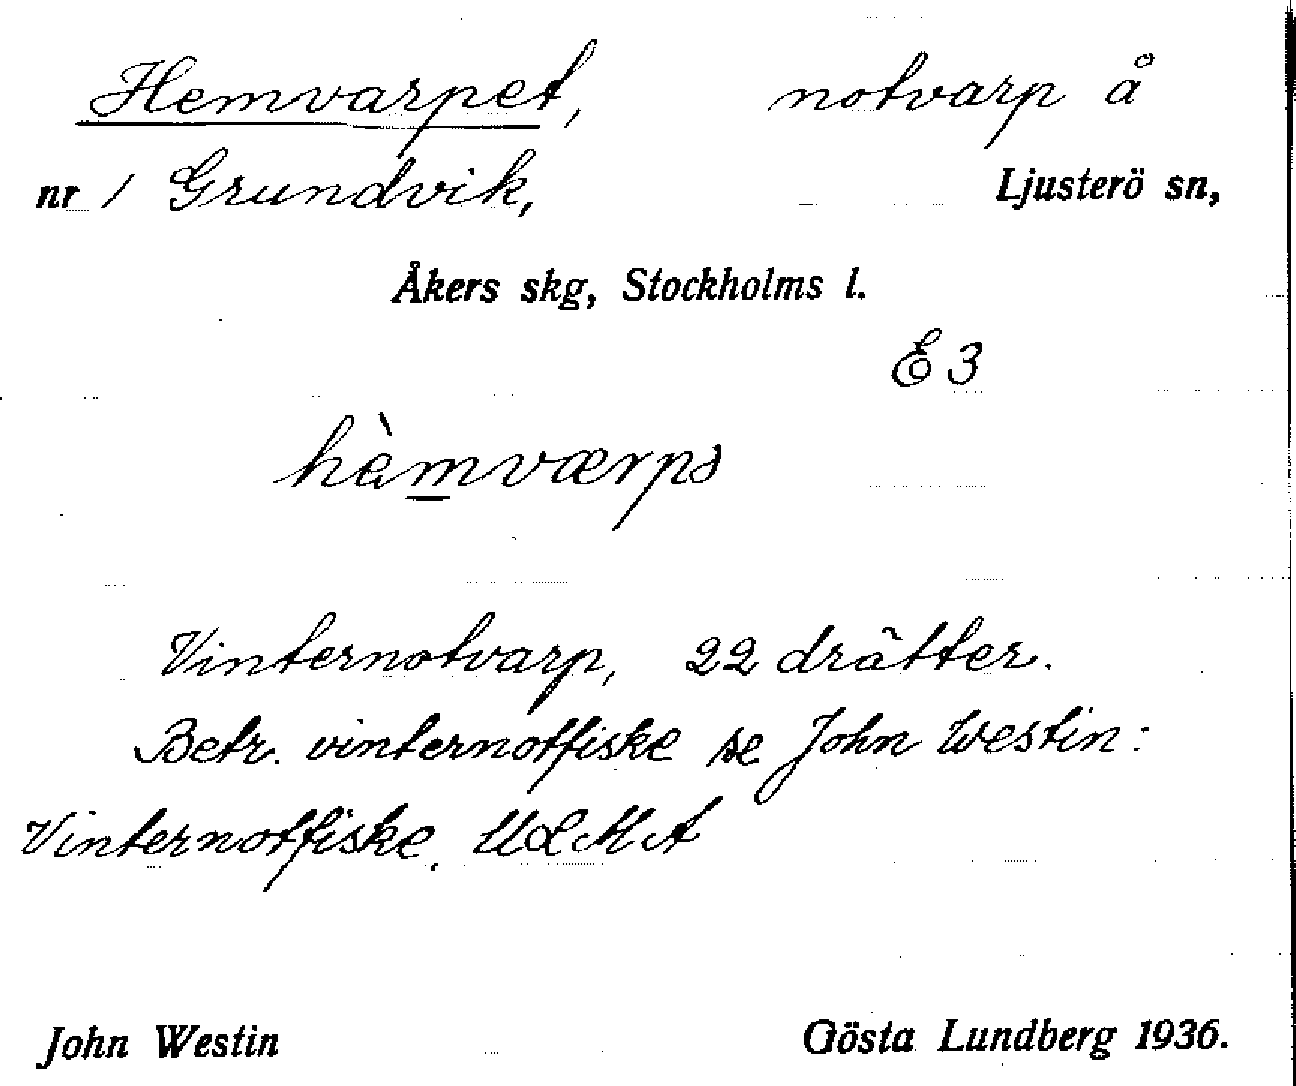 Hemvarpet, notvarp å
nr 1 Grundvik, Ljusterö sn,
Åkers skg, Stockholms l.
E 3
hèmværpə
Vinternotvarp, 22 drätter.
Betr. vinternotfiske se John Westin:
Vinternotfiske. ULMA
John Westin Gösta Lundberg 1936.